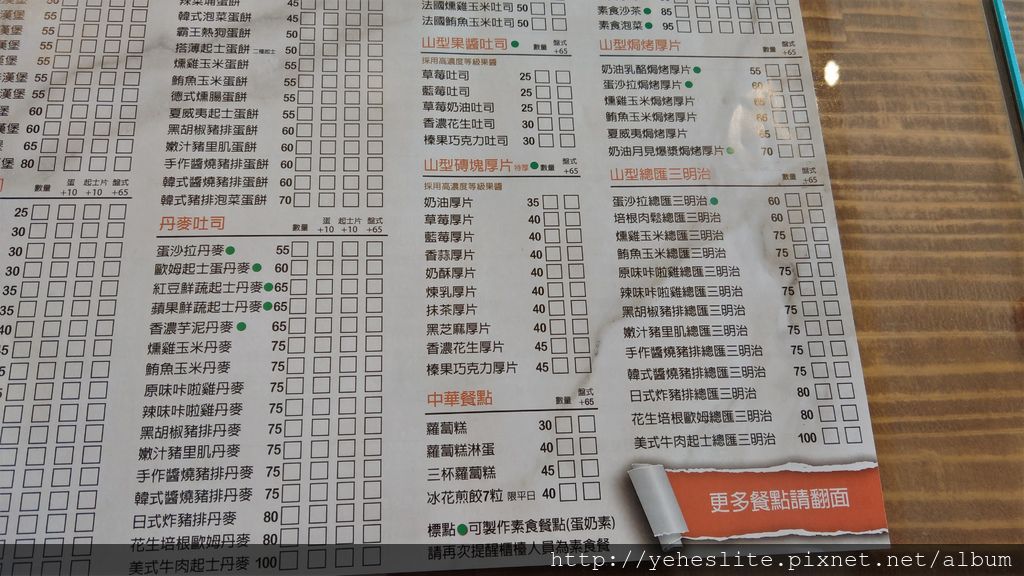 漢堡 55
堡 60
堡 60
堡 60
堡 80
數量 蛋+10 起士片+10 盤式+65
25
30
30
30
35
35
40
辣菜脯蛋餅
韓式泡菜蛋餅 45
霸王熱狗蛋餅 50
搭薄起士蛋餅 二種起士 50
燻雞玉米蛋餅 55
鮪魚玉米蛋餅 55
德式燻腸蛋餅 55
夏威夷起士蛋餅 55
黑胡椒豬排蛋餅 60
嫩汁豬里肌蛋餅 60
手作醬燒豬排蛋餅 60
韓式醬燒豬排蛋餅 60
韓式豬排泡菜蛋餅 70
丹麥吐司 數量 蛋+10 起士片+10 盤式+65
蛋沙拉丹麥● 55
歐姆起士蛋丹麥● 60
紅豆鮮蔬起士丹麥● 65
蘋果鮮蔬起士丹麥● 65
香濃芋泥丹麥● 65
燻雞玉米丹麥 75
鮪魚玉米丹麥 75
原味咔啦雞丹麥 75
辣味咔啦雞丹麥 75
黑胡椒豬排丹麥 75
嫩汁豬里肌丹麥 75
手作醬燒豬排丹麥 75
韓式醬燒豬排丹麥 75
日式炸豬排丹麥 80
花生培根歐姆丹麥 80
美式牛肉起士丹麥 100
法國燻雞玉米吐司 50
法國鮪魚玉米吐司 50
山型果醬吐司● 數量 盤式+65
採用高濃度等級果醬
草莓吐司 25
藍莓吐司 25
草莓奶油吐司 25
香濃花生吐司 30
榛果巧克力吐司 30
山型磚塊厚片 特厚● 數量 盤式+65
採用高濃度等級果醬
奶油厚片 35
草莓厚片 40
藍莓厚片 40
香蒜厚片 40
奶酥厚片 40
煉乳厚片 40
抹茶厚片 40
黑芝麻厚片 40
香濃花生厚片 45
榛果巧克力厚片 45
中華餐點 數量 盤式+65
蘿蔔糕 30
蘿蔔糕淋蛋 40
三杯蘿蔔糕 45
冰花煎餃7粒 限平日 40
標點●可製作素食餐點(蛋奶素)
請再次提醒櫃檯人員為素食餐
素食沙茶● 85
素食泡菜● 95
山型焗烤厚片 數量 盤式+65
奶油乳酪焗烤厚片● 55
蛋沙拉焗烤厚片● 60
燻雞玉米焗烤厚片 65
鮪魚玉米焗烤厚片 65
夏威夷焗烤厚片 65
奶油月見爆漿焗烤厚片● 70
山型總匯三明治 數量 盤式+65
蛋沙拉總匯三明治● 60
培根肉鬆總匯三明治 60
燻雞玉米總匯三明治 75
鮪魚玉米總匯三明治 75
原味咔啦雞總匯三明治 75
辣味咔啦雞總匯三明治 75
黑胡椒豬排總匯三明治 75
嫩汁豬里肌總匯三明治 75
手作醬燒豬排總匯三明治 75
韓式醬燒豬排總匯三明治 75
日式炸豬排總匯三明治 80
花生培根歐姆總匯三明治 80
美式牛肉起士總匯三明治 100
更多餐點請翻面
http://yeheslite.pixnet.net/album